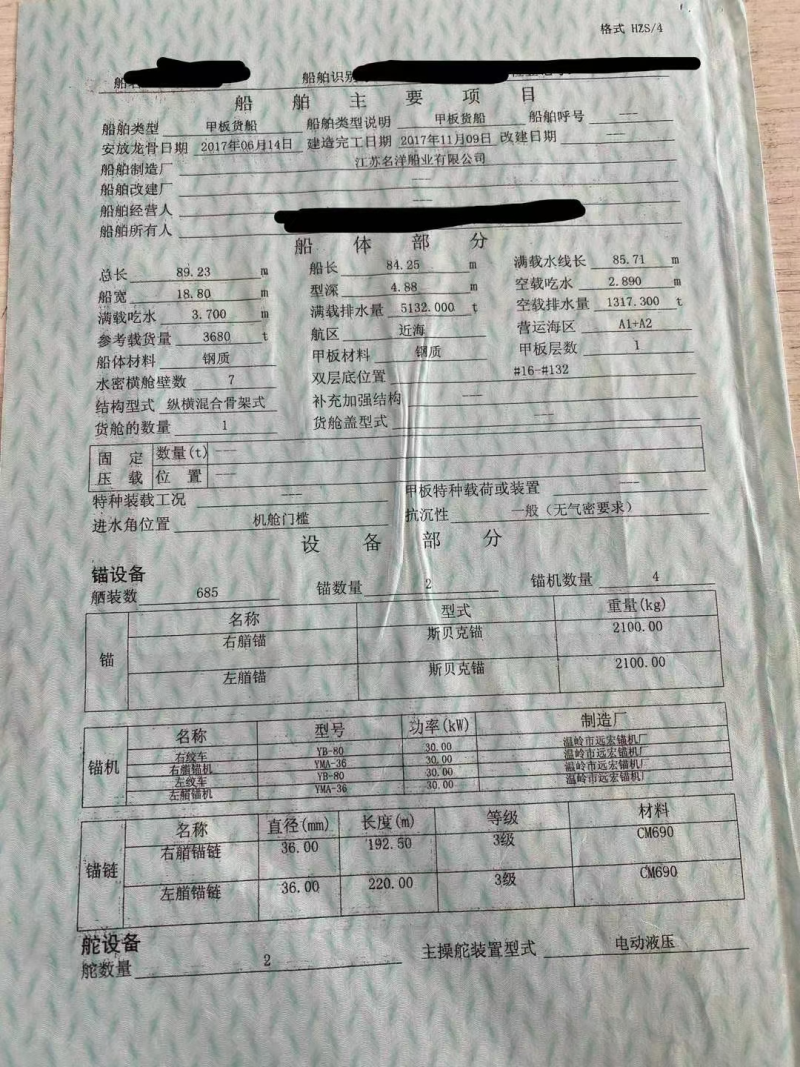 格式 HZS/4
船舶识别
船舶主要项目
船舶类型 甲板货船 船舶类型说明 甲板货船 船舶呼号 ---
安放龙骨日期 2017年06月14日 建造完工日期 2017年11月09日 改建日期 ---
船舶制造厂 江苏名洋船业有限公司
船舶改建厂 ---
船舶经营人 ---
船舶所有人
船体部分
总长 89.23 m 船长 84.25 m 满载水线长 85.71 m
船宽 18.80 m 型深 4.88 m 空载吃水 2.890 m
满载吃水 3.700 m 满载排水量 5132.000 t 空载排水量 1317.300 t
参考载货量 3680 t 航区 近海 营运海区 A1+A2
船体材料 钢质 甲板材料 钢质 甲板层数 1
水密横舱壁数 7 双层底位置 #16-#132
结构型式 纵横混合骨架式 补充加强结构 ---
货舱的数量 1 货舱盖型式 ---
固定压载 数量(t) ---
位置 ---
特种装载工况 --- 甲板特种载荷或装置 ---
进水角位置 机舱门槛 抗沉性 一般（无气密要求）
设备部分
锚设备
舾装数 685 锚数量 2 锚机数量 4
锚 名称 型式 重量(kg)
右艏锚 斯贝克锚 2100.00
左艏锚 斯贝克锚 2100.00
锚机 名称 型号 功率(kW) 制造厂
右绞车 YB-80 30.00 温岭市远宏锚机厂
右艏锚机 YMA-36 30.00 温岭市远宏锚机厂
左绞车 YB-80 30.00 温岭市远宏锚机厂
左艏锚机 YMA-36 30.00 温岭市远宏锚机厂
锚链 名称 直径(mm) 长度(m) 等级 材料
右艏锚链 36.00 192.50 3级 CM690
左艏锚链 36.00 220.00 3级 CM690
舵设备
舵数量 2 主操舵装置型式 电动液压